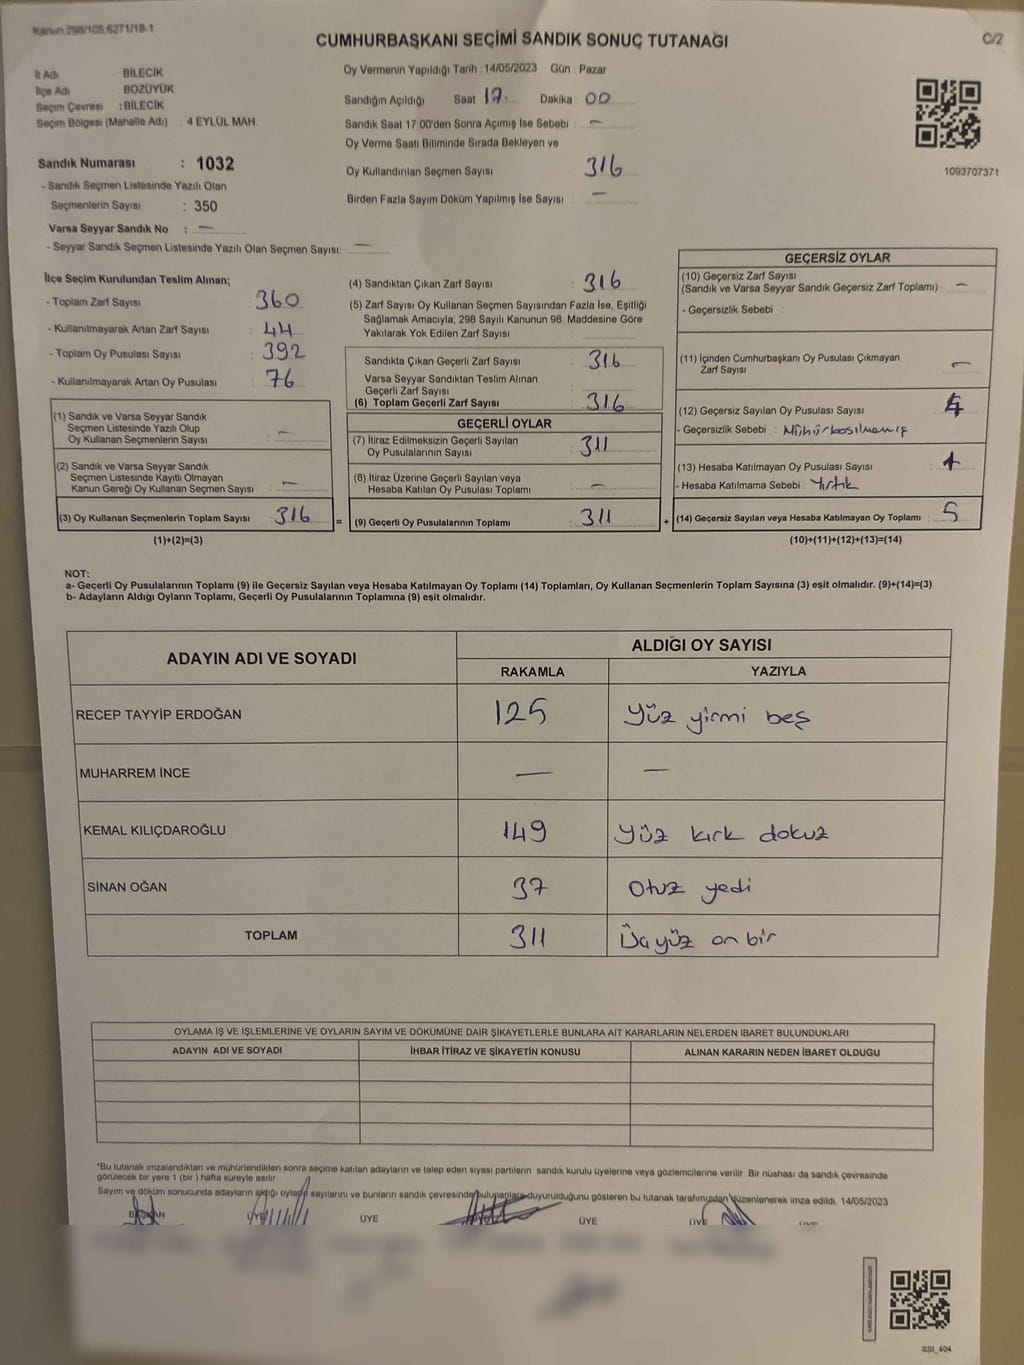 Kanun:298/105,6271/18-1
CUMHURBAŞKANI SEÇİMİ SANDIK SONUÇ TUTANAĞI
C/2
İl Adı : BİLECİK
İlçe Adı : BOZÜYÜK
Seçim Çevresi : BİLECİK
Seçim Bölgesi (Mahalle Adı) : 4 EYLÜL MAH.
Oy Vermenin Yapıldığı Tarih : 14/05/2023 Gün : Pazar
Sandığın Açıldığı Saat 17 Dakika 00
Sandık Saat 17:00'den Sonra Açımış İse Sebebi : —
Oy Verme Saati Bitiminde Sırada Bekleyen ve
Oy Kullandırılan Seçmen Sayısı 316
Birden Fazla Sayım Döküm Yapılmış İse Sayısı —
1093707371
Sandık Numarası : 1032
- Sandık Seçmen Listesinde Yazılı Olan
Seçmenlerin Sayısı : 350
Varsa Seyyar Sandık No : —
- Seyyar Sandık Seçmen Listesinde Yazılı Olan Seçmen Sayısı: —
İlçe Seçim Kurulundan Teslim Alınan;
- Toplam Zarf Sayısı : 360
- Kullanılmayarak Artan Zarf Sayısı : 44
- Toplam Oy Pusulası Sayısı : 392
- Kullanılmayarak Artan Oy Pusulası : 76
(1) Sandık ve Varsa Seyyar Sandık
Seçmen Listesinde Yazılı Olup
Oy Kullanan Seçmenlerin Sayısı : —
(2) Sandık ve Varsa Seyyar Sandık
Seçmen Listesinde Kayıtlı Olmayan
Kanun Gereği Oy Kullanan Seçmen Sayısı : —
(3) Oy Kullanan Seçmenlerin Toplam Sayısı : 316 =
(1)+(2)=(3)
(4) Sandıktan Çıkan Zarf Sayısı : 316
(5) Zarf Sayısı Oy Kullanan Seçmen Sayısından Fazla İse, Eşitliği
Sağlamak Amacıyla, 298 Sayılı Kanunun 98. Maddesine Göre
Yakılarak Yok Edilen Zarf Sayısı :
Sandıkta Çıkan Geçerli Zarf Sayısı : 316
Varsa Seyyar Sandıktan Teslim Alınan
Geçerli Zarf Sayısı :
(6) Toplam Geçerli Zarf Sayısı : 316
GEÇERLİ OYLAR
(7) İtiraz Edilmeksizin Geçerli Sayılan
Oy Pusulalarının Sayısı : 311
(8) İtiraz Üzerine Geçerli Sayılan veya
Hesaba Katılan Oy Pusulası Toplamı : —
(9) Geçerli Oy Pusulalarının Toplamı : 311 +
GEÇERSİZ OYLAR
(10) Geçersiz Zarf Sayısı
(Sandık ve Varsa Seyyar Sandık Geçersiz Zarf Toplamı) : —
- Geçersizlik Sebebi :
(11) İçinden Cumhurbaşkanı Oy Pusulası Çıkmayan
Zarf Sayısı : —
(12) Geçersiz Sayılan Oy Pusulası Sayısı : 4
- Geçersizlik Sebebi : Mühürbasılmamış
(13) Hesaba Katılmayan Oy Pusulası Sayısı : 1
- Hesaba Katılmama Sebebi : Yırtık
(14) Geçersiz Sayılan veya Hesaba Katılmayan Oy Toplamı : 5
(10)+(11)+(12)+(13)=(14)
NOT:
a- Geçerli Oy Pusulalarının Toplamı (9) ile Geçersiz Sayılan veya Hesaba Katılmayan Oy Toplamı (14) Toplamları, Oy Kullanan Seçmenlerin Toplam Sayısına (3) eşit olmalıdır. (9)+(14)=(3)
b- Adayların Aldığı Oyların Toplamı, Geçerli Oy Pusulalarının Toplamına (9) eşit olmalıdır.
ADAYIN ADI VE SOYADI ALDIĞI OY SAYISI
RAKAMLA YAZIYLA
RECEP TAYYİP ERDOĞAN 125 Yüz yirmi beş
MUHARREM İNCE — —
KEMAL KILIÇDAROĞLU 149 Yüz kırk dokuz
SİNAN OĞAN 37 Otuz yedi
TOPLAM 311 Üçyüz on bir
OYLAMA İŞ VE İŞLEMLERİNE VE OYLARIN SAYIM VE DÖKÜMÜNE DAİR ŞİKAYETLERLE BUNLARA AİT KARARLARIN NELERDEN İBARET BULUNDUKLARI
ADAYIN ADI VE SOYADI İHBAR İTİRAZ VE ŞİKAYETİN KONUSU ALINAN KARARIN NEDEN İBARET OLDUĞU
*Bu tutanak imzalandıktan ve mühürlendikten sonra seçime katılan adayların ve talep eden siyasi partilerin sandık kurulu üyelerine veya gözlemcilerine verilir. Bir nüshası da sandık çevresinde
görülecek bir yere 1 (bir) hafta süreyle asılır.
Sayım ve döküm sonucunda adayların aldığı oyların sayılarını ve bunların sandık çevresinde bulunanlara duyurulduğunu gösteren bu tutanak tarafımızdan düzenlenerek imza edildi. 14/05/2023
BAŞKAN ÜYE ÜYE ÜYE ÜYE ÜYE
SSI_404